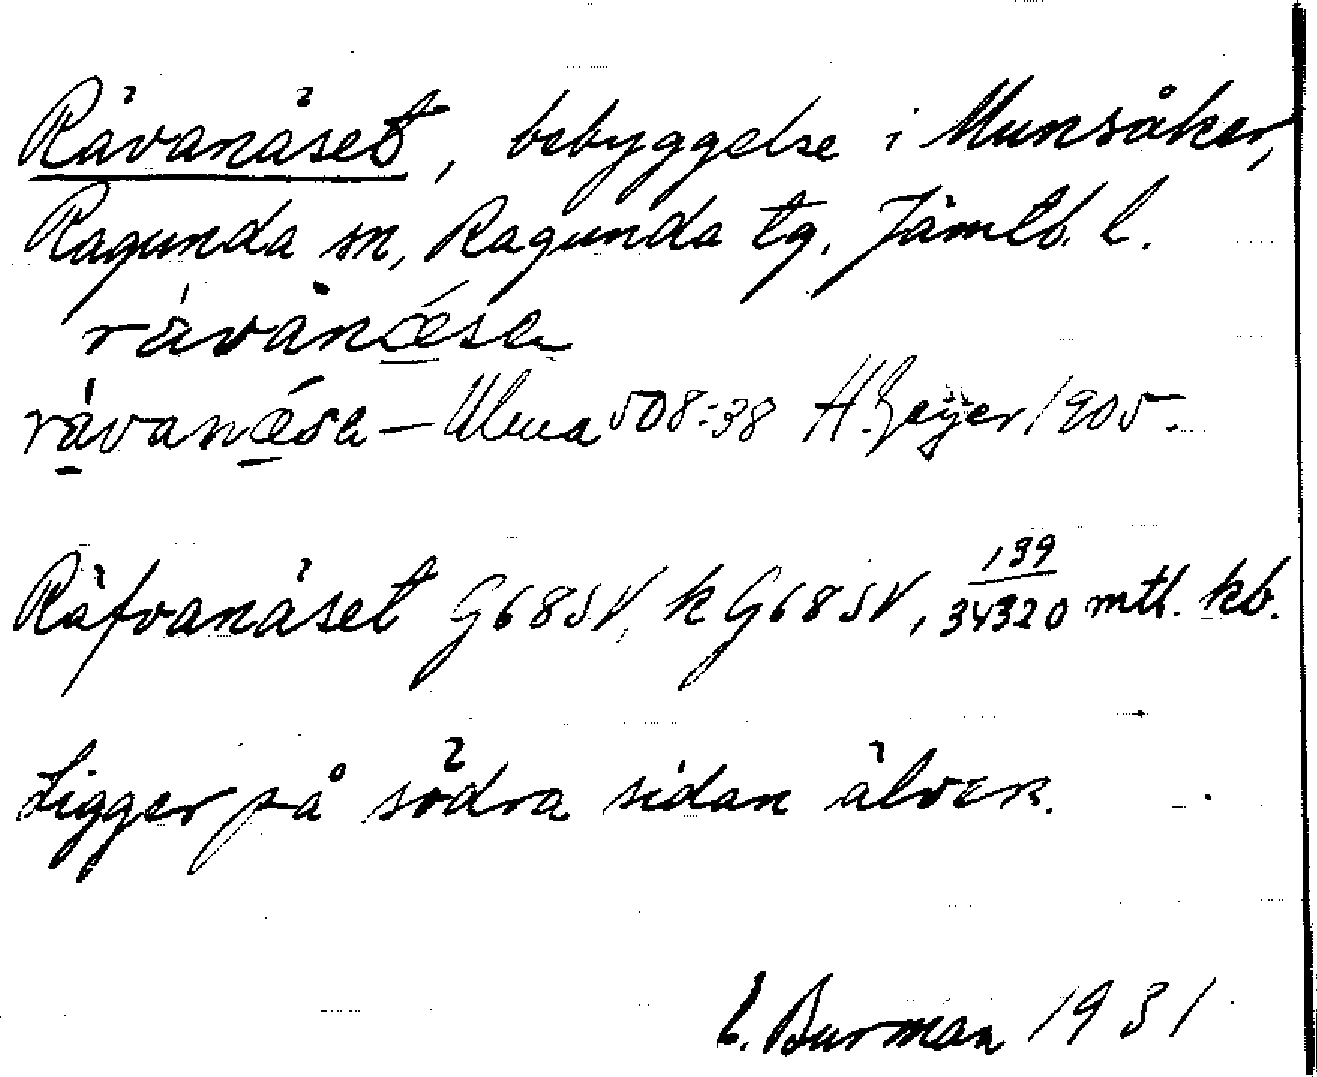 Rävanäset, bebyggelse i Munsåker,
Ragunda sn, Ragunda tg. Jämtl. l.
rävanǽsa
rävanǽsa – Ulma 508:38 H. Geijer 1905.
Räfvanäset G68SV, kG68SV, 139/34320 mtl. kb.
Ligger på södra sidan älven.
E. Burman 1931